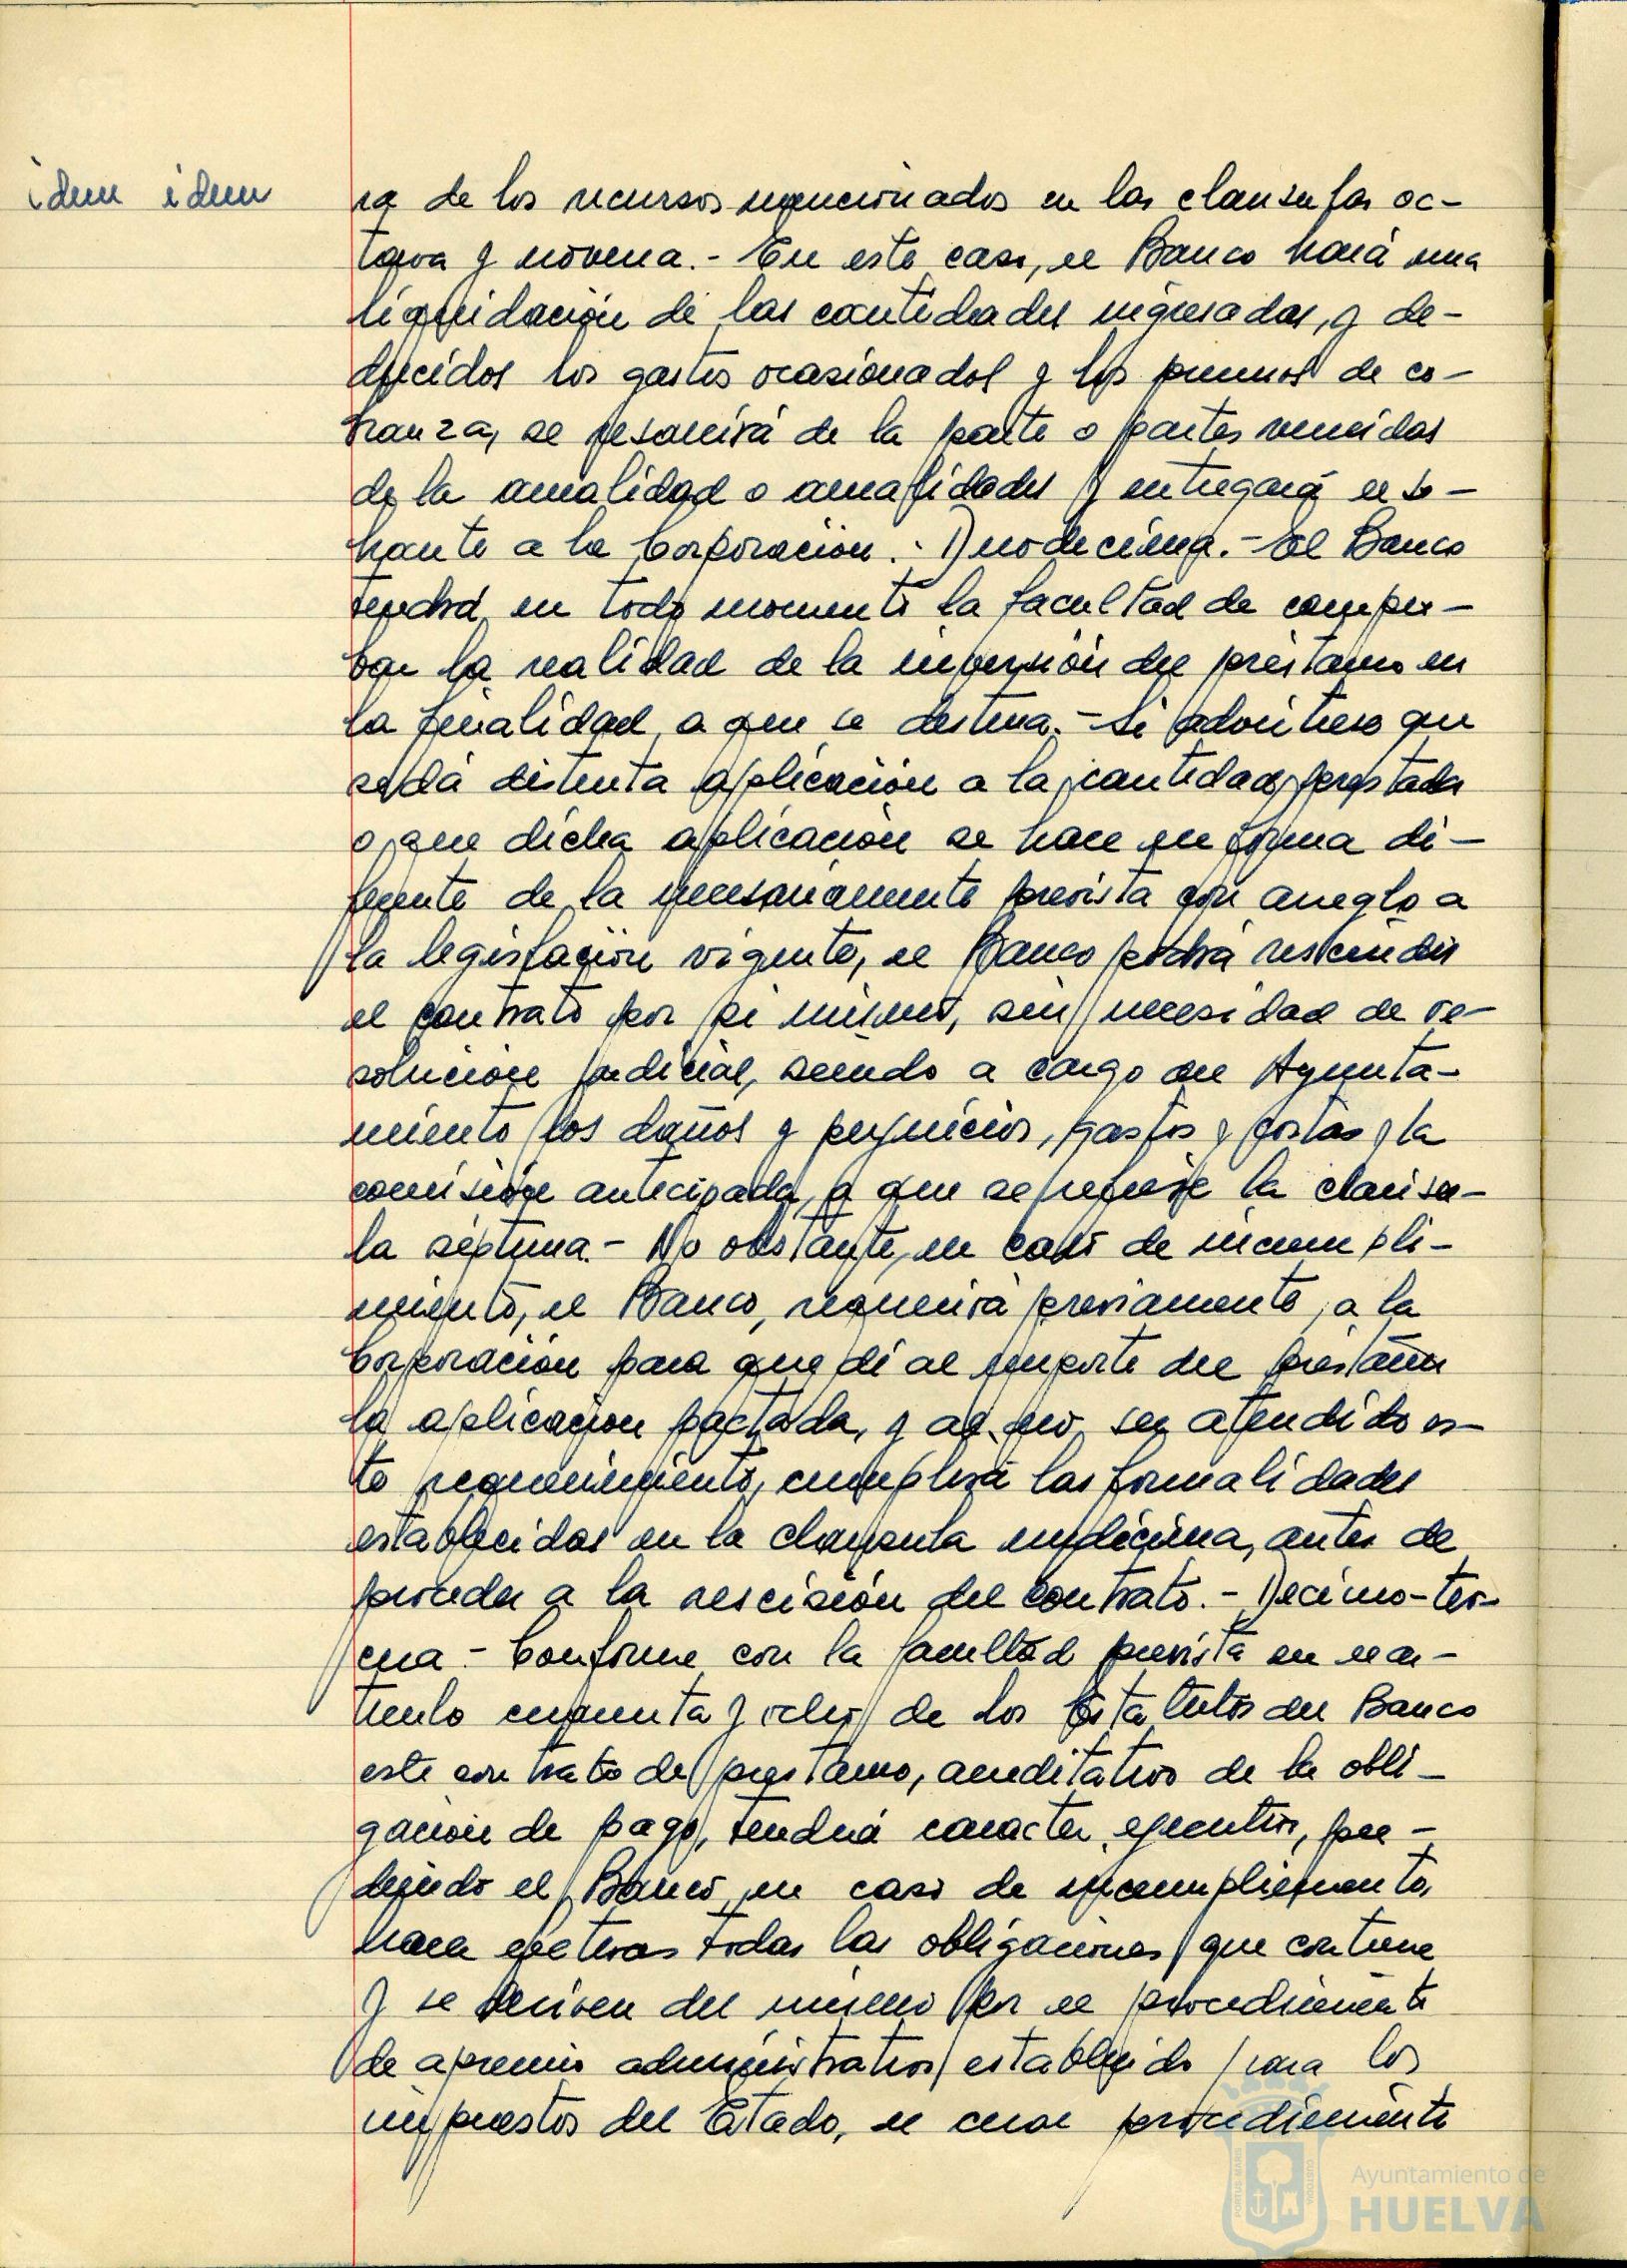 idem idem
ra de los recursos mencionados en las clausulas oc-
tava y novena.- En este caso, el Banco hará una
liquidación de las cantidades ingresadas, y de-
ducidos los gastos ocasionados y los premios de co-
branza, se resarcirá de la parte o partes vencidas
de la anualidad o anualidades y entregará el so-
brante a la Corporación.- Duodecima.- El Banco
tendrá en todo momento la facultad de compro-
bar la realidad de la inversión del préstamo en
la finalidad a que se destina.- Si advirtiese que
se dá distinta aplicación a la cantidad prestada
o que dicha aplicación se hace en forma di-
ferente de la necesariamente prevista con arreglo a
la legislación vigente, el Banco podrá rescindir
el contrato por si mismo, sin necesidad de re-
solución judicial, siendo a cargo del Ayunta-
miento los daños y perjuicios, gastos y costas y la
comisión anticipada, a que se refiere la clausu-
la séptima.- No obstante, en caso de incumpli-
miento, el Banco, requerirá previamente, a la
Corporación para que dé al importe del préstamo
la aplicación pactada, y al no ser atendido es-
te requerimiento, cumplirá las formalidades
establecidas en la clausula undécima, antes de
proceder a la rescisión del contrato.- Decimo-ter-
cera.- Conforme con la facultad prevista en el ar-
ticulo cincuenta y ocho de los Estatutos del Banco
este contrato de préstamo, acreditativo de la obli-
gación de pago, tendrá caracter ejecutivo, pu-
diendo el Banco, en caso de incumplimiento,
hacer efectivas todas las obligaciones que contiene
y se deriven del mismo por el procedimiento
de apremio administrativo establecido para los
impuestos del Estado, el cual procedimiento
Ayuntamiento de
HUELVA